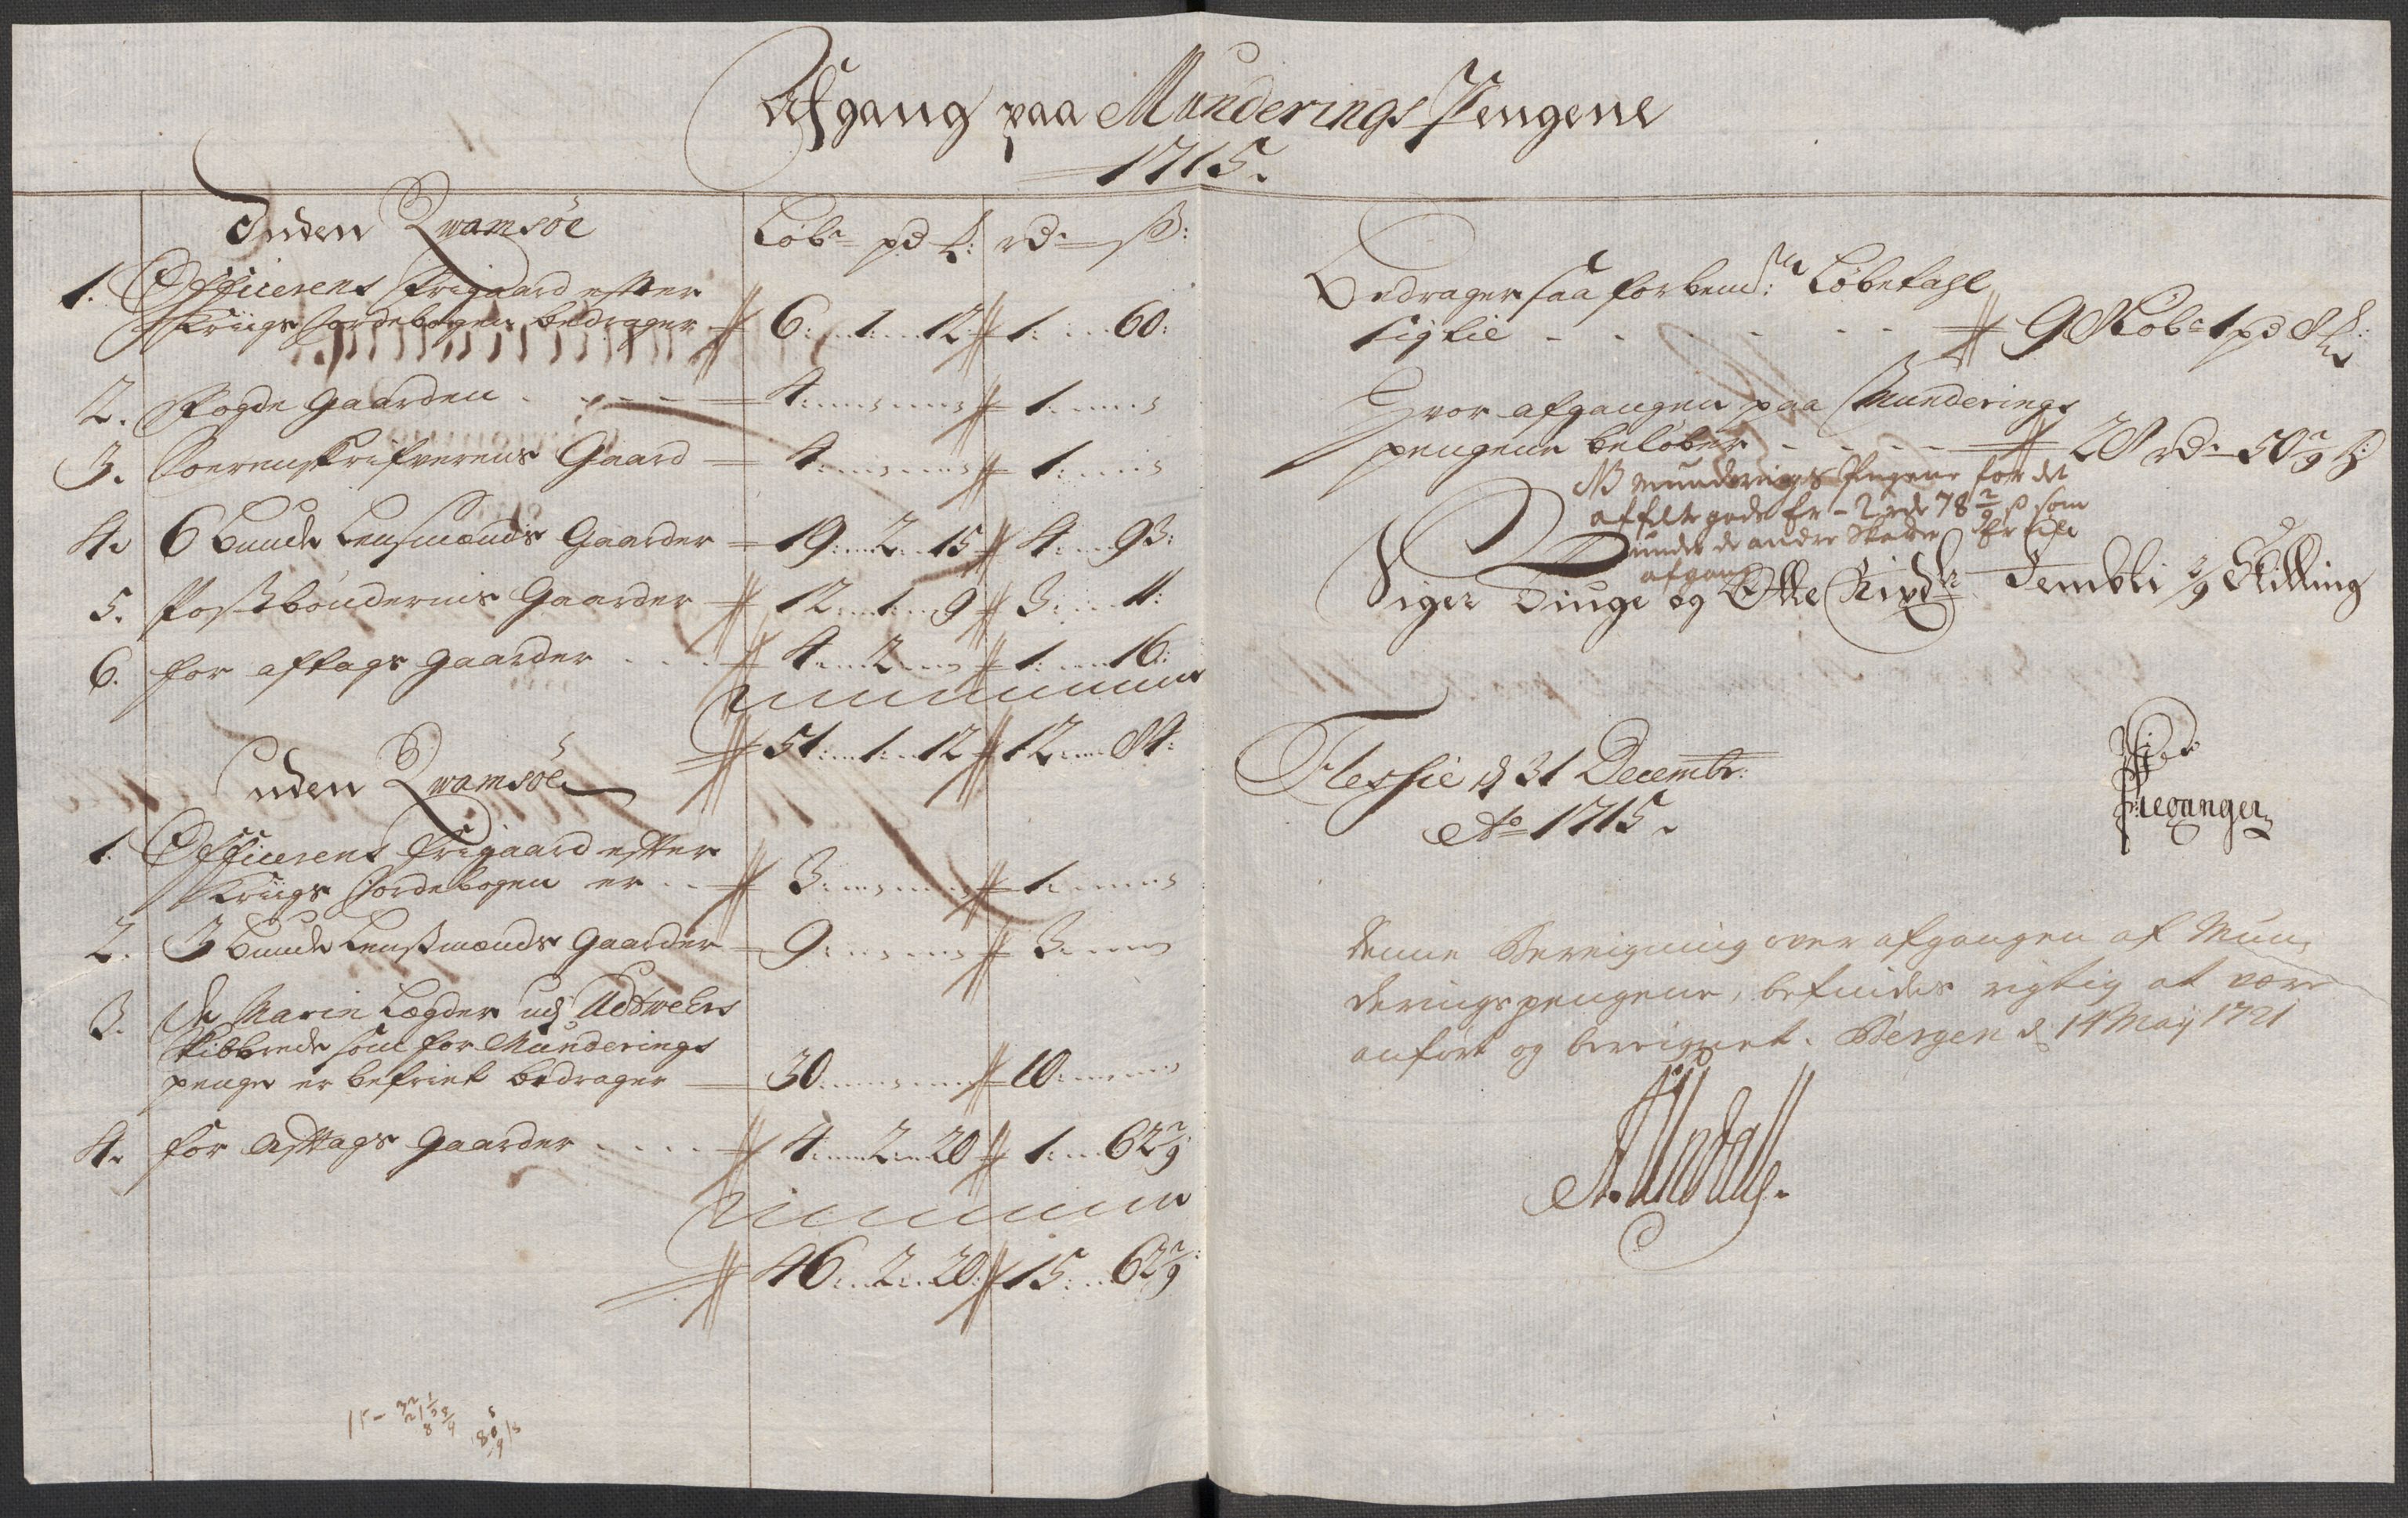 Afgang paa Munderings Pengene
1715.
Inden Qvamsøe
Løb: pd ℔: rd: ß:
1. Officerens Frigaard efter
Kriigs Jordebogen bedrager 6: 1: 12: 1: 60:
2. Fogde Gaarden 4: 1:
3. Soerenskrifverens Gaard 4: 1:
4. 6 Bunde Lensmænds Gaarder 19: 2: 15 4: 93:
5. Postbøndernis Gaarder 12: 1: 9 3: 11:
6. for aftags gaarder 4: 2: 1: 16:
51: 1: 12 12: 84:
Uden Qvamsøe
1. Officerens frigaard efter
Kriigs Jordebogen er 3: 1:
2. 3 bunde Lensmænds Gaarder 9: 3:
3. De Marin Lægder udj Udtweers
Skibbrede som for Munderings
penge er befriet bedrager 30: 10:
4. for Aftags Gaarder 4: 2: 20 1: 62 2/9
46: 2: 20: 15: 62 2/9:
Bedrager saa forbemte: Løbetahl
rigtig 98 Løb: 1 pd 8 ℔:
Hvor afgangen paa Munderings
pengene beløber 28 rd: 50 2/9 ß:
NB Munderings Pengene for det
affelte gods er - 2 rd 78 2/9 ß som
under de andre Skatter er til
afgang
Siger Tiuge og Otte Rixdr: Fembti 2/9 Skilling
Flessie d 31 Decembr:
Ao 1715.
Denne Bereigning over afgangen af Mun-
deringspengene, befindes rigtig at være
anført og bereignet. Bergen d 14 Maij 1721